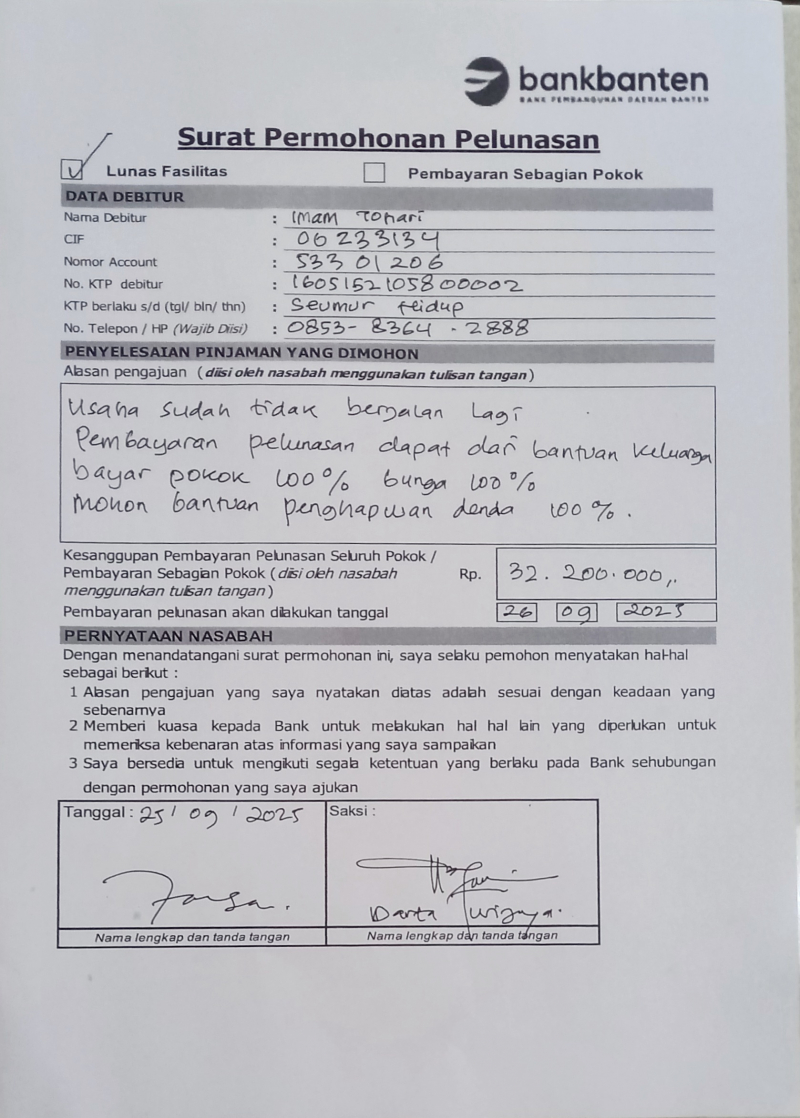 bankbanten
BANK PEMBANGUNAN DAERAH BANTEN
Surat Permohonan Pelunasan
Lunas Fasilitas Pembayaran Sebagian Pokok
DATA DEBITUR
Nama Debitur : Imam Tohari
CIF : 06233134
Nomor Account : 533 01 206
No. KTP debitur : 1605152105800002
KTP berlaku s/d (tgl/ bln/ thn) : Seumur Hidup
No. Telepon / HP (Wajib Diisi) : 0853-8364-2888
PENYELESAIAN PINJAMAN YANG DIMOHON
Alasan pengajuan (diisi oleh nasabah menggunakan tulisan tangan)
Usaha sudah tidak berjalan lagi
Pembayaran pelunasan dapat dari bantuan keluarga
bayar pokok 100% bunga 100%
Mohon bantuan penghapusan denda 100%.
Kesanggupan Pembayaran Pelunasan Seluruh Pokok /
Pembayaran Sebagian Pokok (diisi oleh nasabah Rp. 32.200.000,.
menggunakan tulisan tangan)
Pembayaran pelunasan akan dilakukan tanggal 26 09 2025
PERNYATAAN NASABAH
Dengan menandatangani surat permohonan ini, saya selaku pemohon menyatakan hal-hal
sebagai berikut :
1 Alasan pengajuan yang saya nyatakan diatas adalah sesuai dengan keadaan yang
sebenarnya
2 Memberi kuasa kepada Bank untuk melakukan hal hal lain yang diperlukan untuk
memeriksa kebenaran atas informasi yang saya sampaikan
3 Saya bersedia untuk mengikuti segala ketentuan yang berlaku pada Bank sehubungan
dengan permohonan yang saya ajukan
Tanggal : 25 / 09 / 2025 Saksi :
Danta Wijaya.
Nama lengkap dan tanda tangan Nama lengkap dan tanda tangan